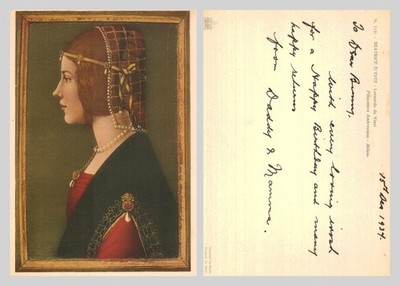 To Dear Bunny.
With every loving wish
for a Happy Birthday and many
happy returns
from Daddy & Mamma.
18th Dec 1934.
BEATRICE D'ESTE - Leonardo da Vinci
Pinacoteca Ambrosiana - Milano